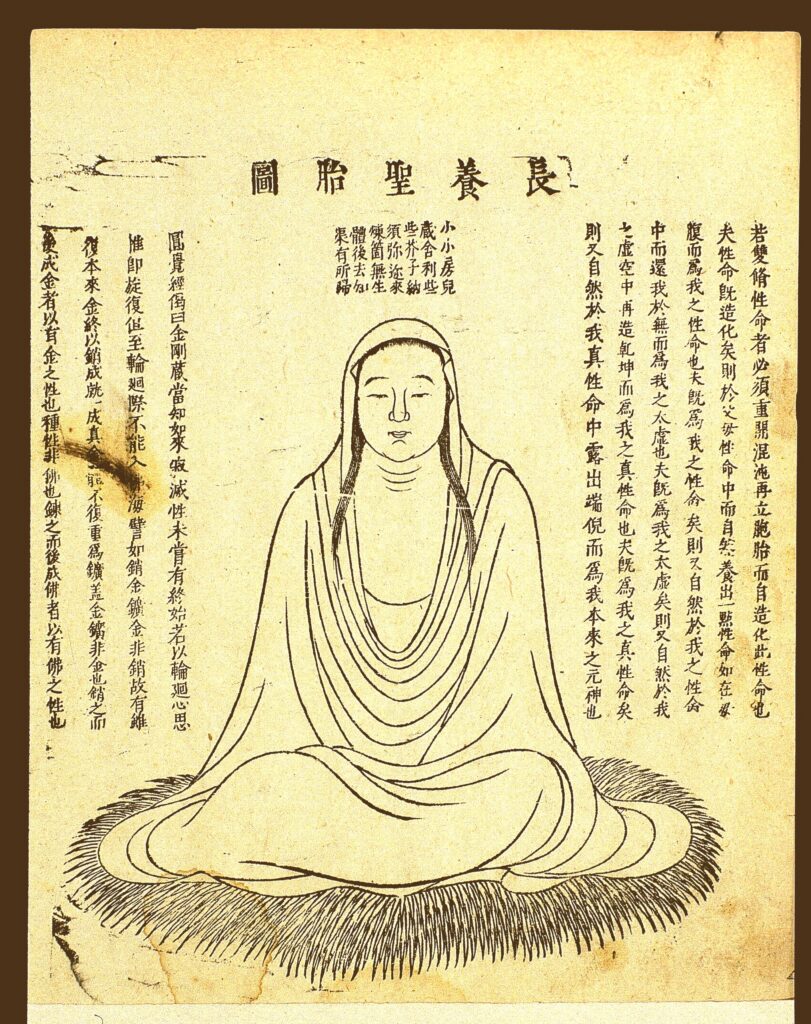 長養聖胎圖
若雙脩性命者必須重開混沌再立胞胎而自造化此性命也
夫性命旣造化矣則於父母性命中而自然養出一點性命如在母
腹而爲我之性命也夫旣爲我之性命矣則又自然於我之性命
中而還我於無而爲我之太虛也夫旣爲我之太虛矣則又自然於我
之虛空中再造乾坤而爲我之真性命也夫旣爲我之真性命矣
則又自然於我真性命中露出端倪而爲我本來之元神也
小小房兒
蔵舍利些
些芥子納
須弥迩來
煉箇無生
體後去知
渠有所歸
圓覺經偈曰金剛蔵當知如來寂滅性未嘗有終始若以輪迴心思
惟即旋復但至輪迴際不能入佛海譬如銷金鑛金非銷故有雖
復本來金終以銷成就一成真金不復重爲鑛盖金鑛非金也銷之而
成金者以有金之性也種性非佛也錬之而後成佛者以有佛之性也